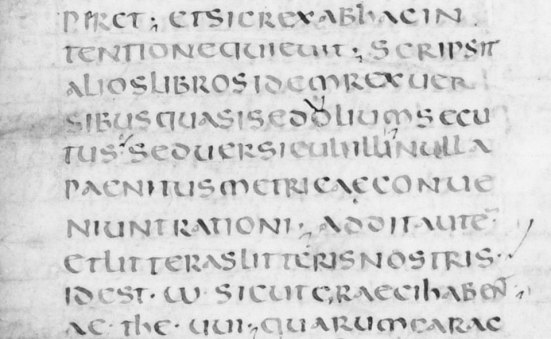 et sic rex ab hac in
tentione quieuit ; scripsit
alios libros idem rex uer
sibus quasi sedolium secu
tus sed uersiculi illi nulla
paenitus metricae conue
niunt rationi · addit autē
et litteras litteris nostris ·
id est · ω · sicut graeci habent ·
ae · the · uui · quarum carac